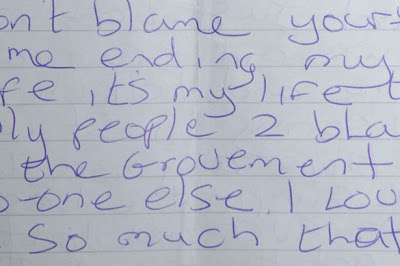 on't blame your
me ending my
fe, it's my life
ly people 2 bla
the Grovement
o-one else. I Lov
So much that